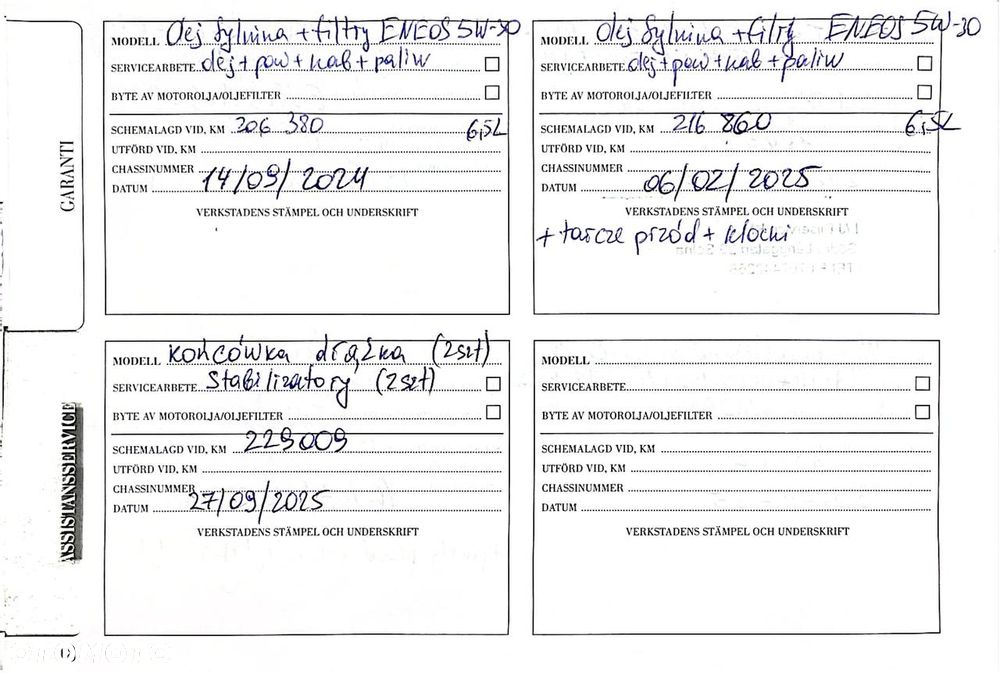 GARANTI
MODELL Olej Sylnina + filtry ENEOS 5W-30
SERVICEARBETE olej + pow + kab + paliw
BYTE AV MOTOROLJA/OLJEFILTER
SCHEMALAGD VID, KM 206 380 6,5L
UTFÖRD VID, KM
CHASSINUMMER
DATUM 14/09/2024
VERKSTADENS STÄMPEL OCH UNDERSKRIFT
MODELL Olej Sylnina + filtry ENEOS 5W-30
SERVICEARBETE olej + pow + kab + paliw
BYTE AV MOTOROLJA/OLJEFILTER
SCHEMALAGD VID, KM 216 860 6,5L
UTFÖRD VID, KM
CHASSINUMMER
DATUM 06/02/2025
VERKSTADENS STÄMPEL OCH UNDERSKRIFT
+ tarcze przód + klocki
ASSISTANSSERVICE
MODELL końcówka drążka (2szt)
SERVICEARBETE Stabilizatory (2szt)
BYTE AV MOTOROLJA/OLJEFILTER
SCHEMALAGD VID, KM 229009
UTFÖRD VID, KM
CHASSINUMMER
DATUM 27/09/2025
VERKSTADENS STÄMPEL OCH UNDERSKRIFT
MODELL
SERVICEARBETE
BYTE AV MOTOROLJA/OLJEFILTER
SCHEMALAGD VID, KM
UTFÖRD VID, KM
CHASSINUMMER
DATUM
VERKSTADENS STÄMPEL OCH UNDERSKRIFT